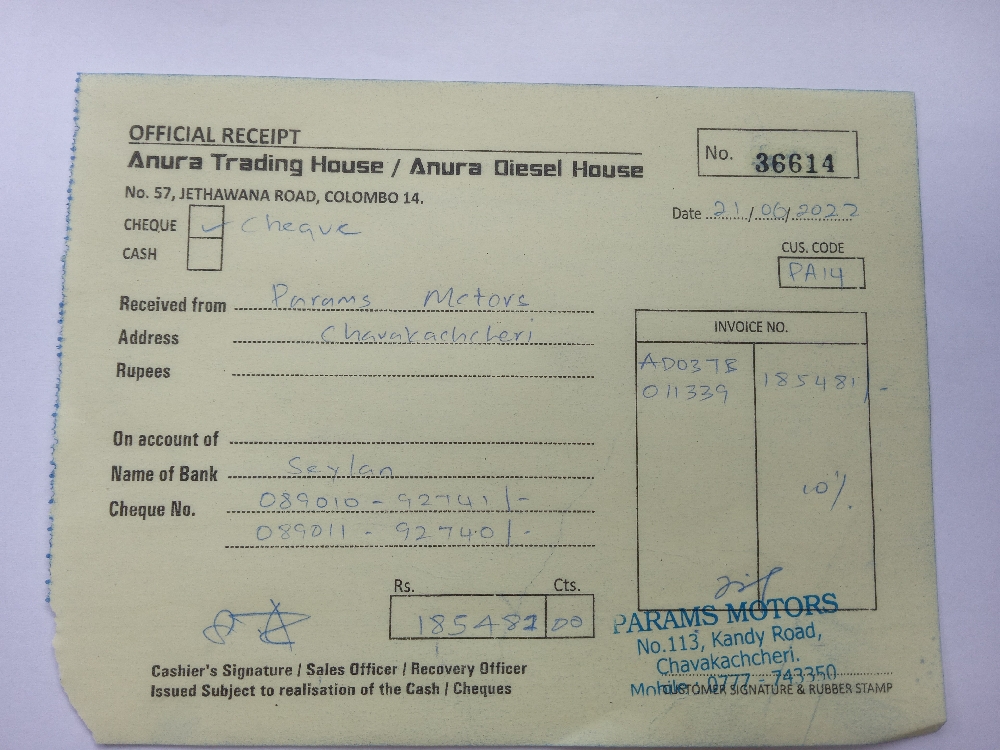 OFFICIAL RECEIPT
Anura Trading House / Anura Diesel House
No. 57, JETHAWANA ROAD, COLOMBO 14.
No. 36614
Date 21/06/2022
CHEQUE ✓ Cheque
CASH
CUS. CODE
PA14
Received from Params Motors
Address Chavakachcheri
Rupees
INVOICE NO.
AD037B 185481/-
011339
On account of
Name of Bank Seylan
10%.
Cheque No. 089010 - 92741/-
089011 - 92740/-
Rs. Cts.
185481 00
PARAMS MOTORS
No.113, Kandy Road,
Chavakachcheri.
Mobile : 0777 - 743350
Cashier's Signature / Sales Officer / Recovery Officer
Issued Subject to realisation of the Cash / Cheques
CUSTOMER SIGNATURE & RUBBER STAMP